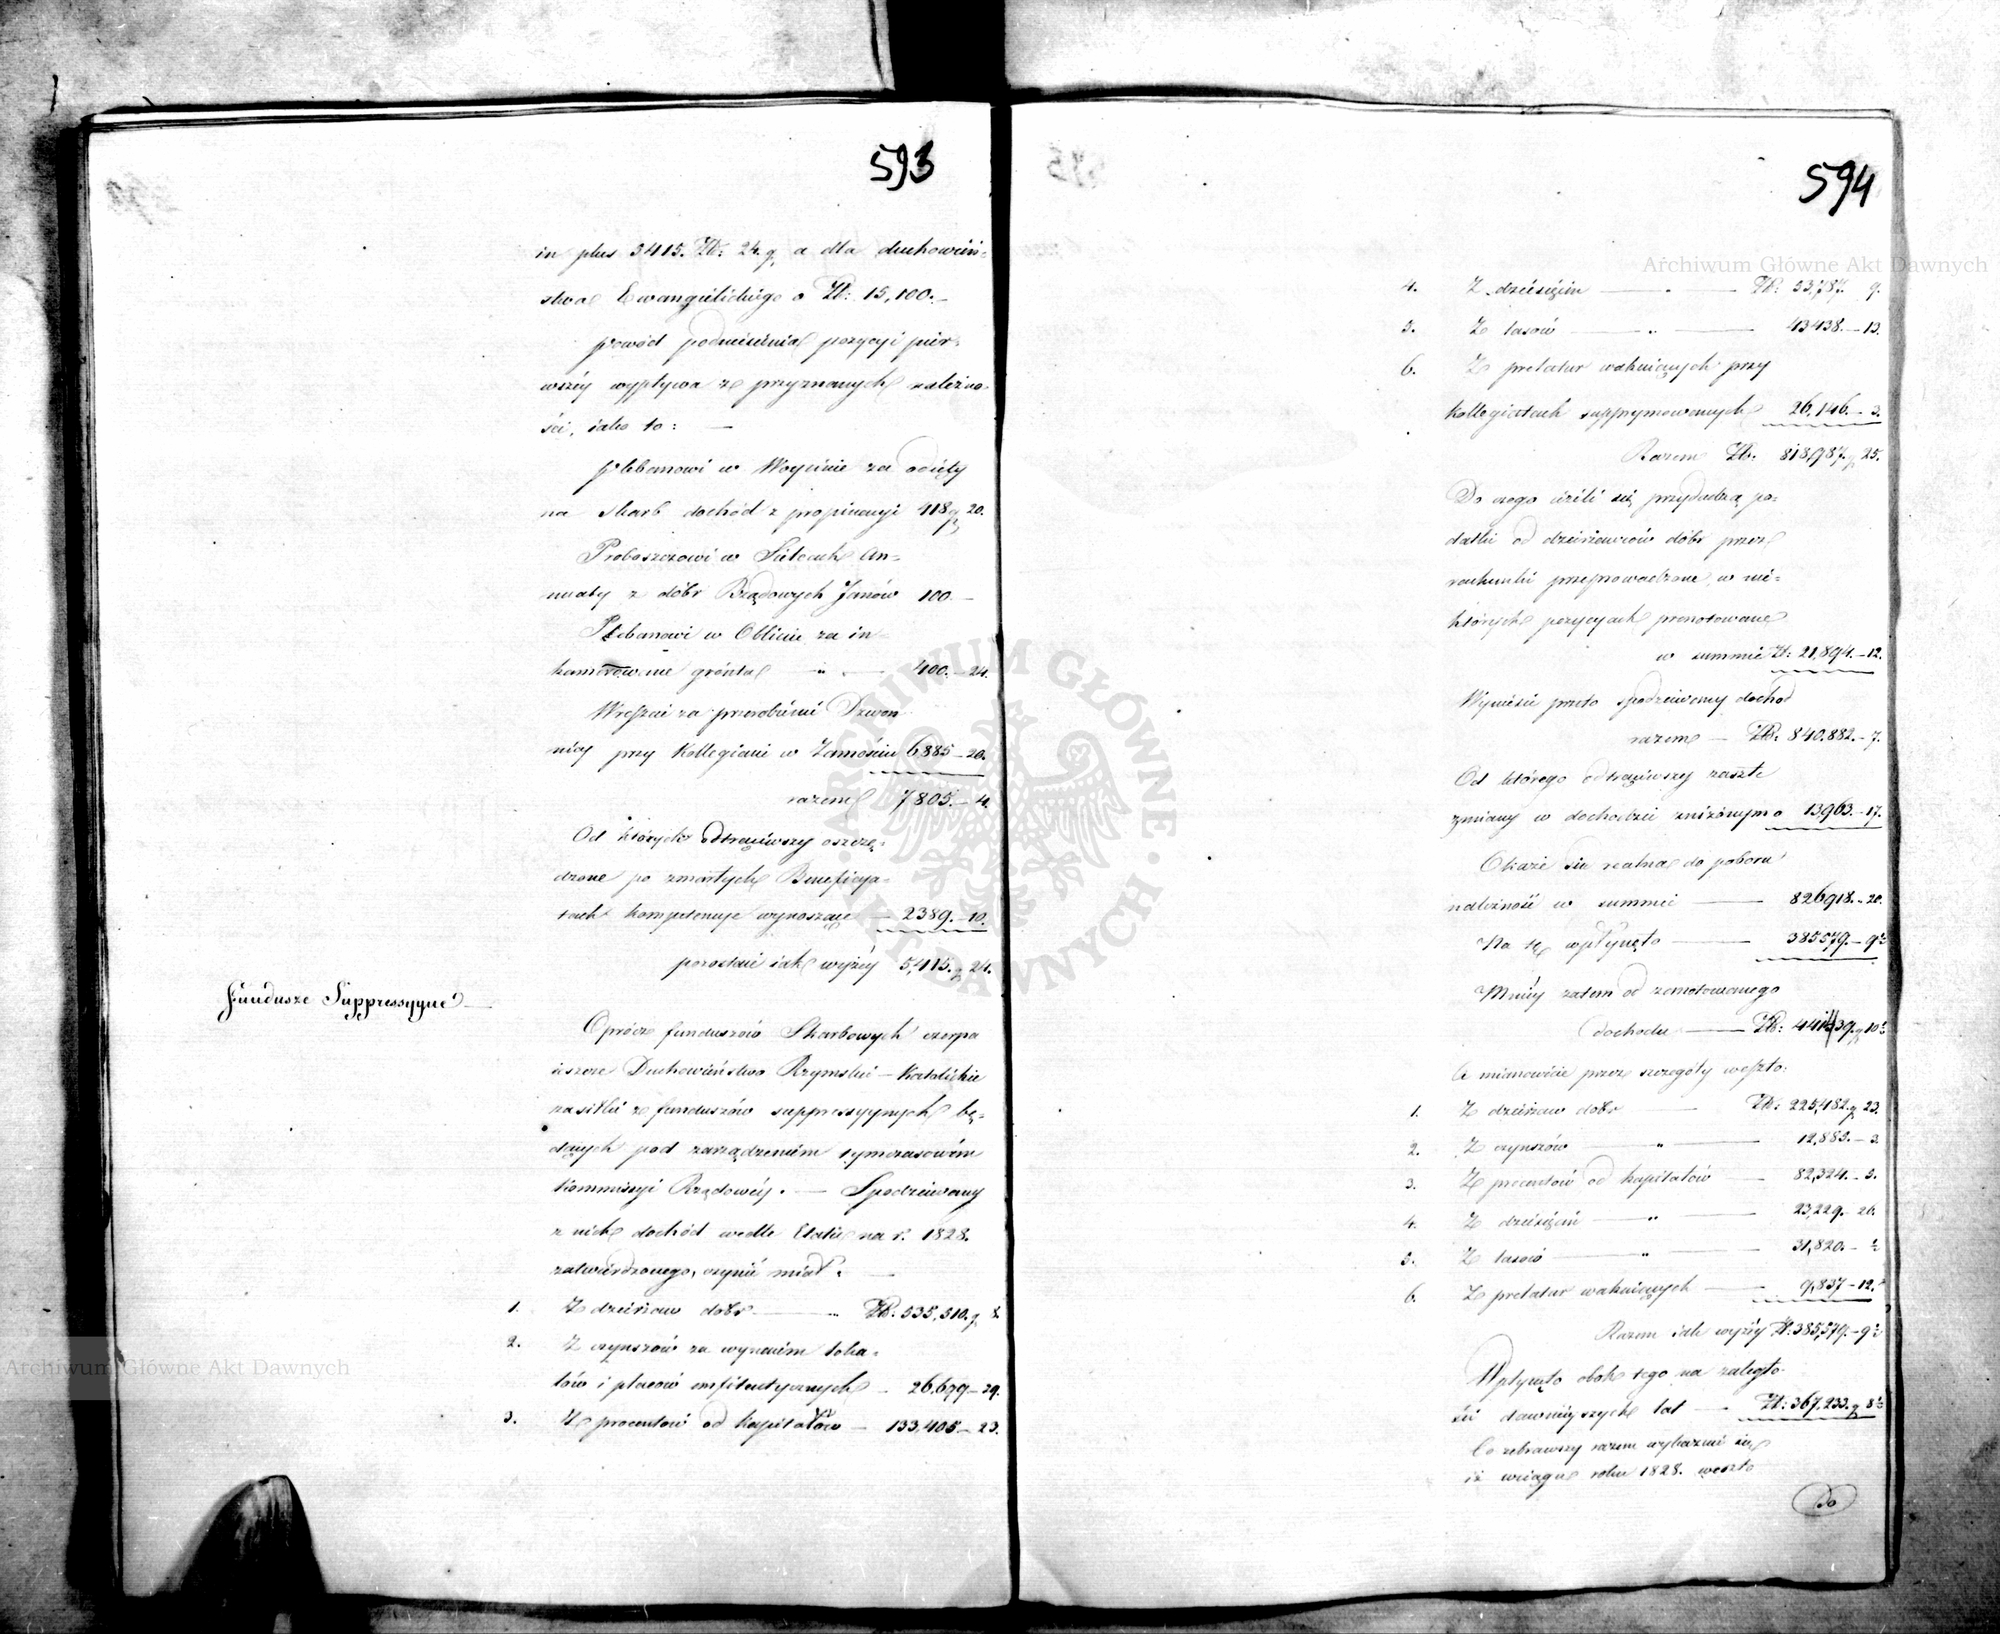 593
in plus 5415. Zł: 24. g. a dla duchowień-
stwa Ewangelickiego o Zł: 15,100.—
Powód podniesienia pozycyi pier-
wszéy wypływa ze przyznanych należno-
ści, jako to: —
Plebanowi w Woycinie za odięty
na skarb dochód z propinacyi 418 g. 20.
Proboszczowi w Sielcach An-
nuaty z dóbr Rządowych Janów 100.—
Plebanowi w Oblinie za in-
kamerowane grónta — „ — 400.—24.
Wreszcie za przerobienie Dzwon
nicy przy Kollegiacie w Zamościu 6885—20.
razem 7805.—4.
Od których odtrąciwszy oszczę-
dzone po zmarłych Beneficja-
tach kompetencye wynoszące — 2389.—10.
pozostaie iak wyżéy 5,415. g. 24.
Fundusze Suppressyyne —
Oprócz funduszów Skarbowych czerpa
ieszcze Duchowieństwo Rzymsko-Katolickie
zasiłki z funduszów suppressyynych bę-
dących pod zarządzeniem tymczasowém
Kommissyi Rządowéy. — Spodziewany
z nich dochód wedle Etatu na r. 1828.
zatwierdzonego, czynić miał: —
1. Z dzierżaw dóbr — „ Zł: 535,510. g. 8.
2. Z czynszów za wynaiem loka-
lów i placów emfiteutycznych — 26,699—29.
3. Z procentów od kapitałów — 133,405—23.
594
4. Z dziesięcin — „ — Zł: 53,787. g.
5. Z lasów — „ — 43438.—13.
6. Z prelatur wakuiących przy
Kollegiatach supprymowanych 26,146.—3.
Razem Zł: 818,987. g. 25.
Do czego ieżeli się przydadzą po-
datki od dzierżawców dóbr przez
rachunki przeprowadzone, w nie-
których pozycyach prenotowane
w summie Zł: 21,894.—12.
Wyniesie przeto spodziewany dochód
razem — Zł: 840.882.—7.
Od którego odtrąciwszy zaszłe
zmiany w dochodzie zniżonym o 13963.—17.
Okaże się realna do poboru
należność w summie — 826918.—20.
Na tę wpłynęło — 385579.—9½
Mniéy zatem od zanotowanego
dochodu — Zł: 441339. g. 10½
A mianowicie przez szczegóły weszło:
1. Z dzierżaw dóbr — Zł: 225,482. g. 23.
2. Z czynszów — „ — 12,885.—3.
3. Z procentów od kapitałów — 82,324.—5.
4. Z dziesięcin — „ — 23,229.—26.
5. Z lasów — „ — 31,820.—½
6. Z prelatur wakuiących — 9,837—12.
Razem iak wyżéy Zł: 385,579.—9½
Wpłynęło obok tego na zaległo-
ści dawnieyszych lat — Zł: 367,233. g. 8½
Co zebrawszy razem wykazuie się
iż wciągu roku 1828. weszło
Do
Archiwum Główne Akt Dawnych
Archiwum Główne Akt Dawnych
ARCHIWUM GŁÓWNE · AKT DAWNYCH ·